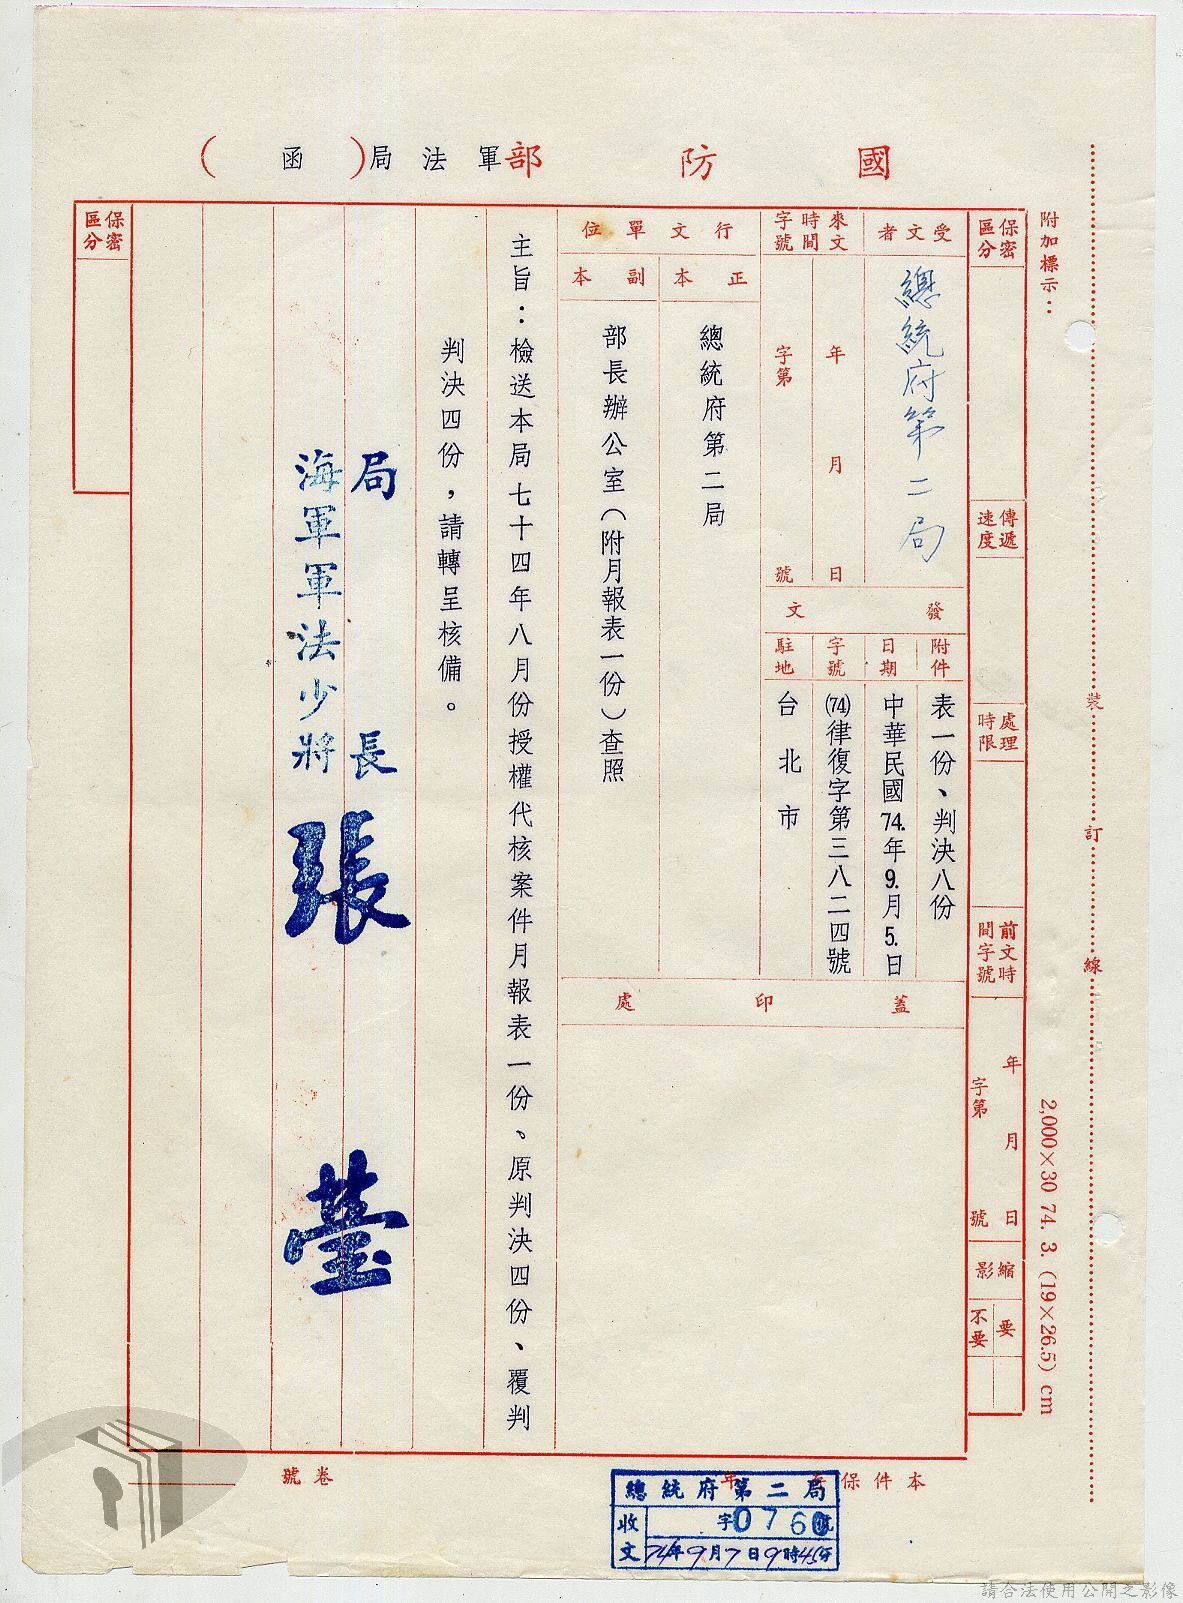 國防部軍法局（函）
附加標示：
裝訂線
2,000×30 74. 3. (19×26.5) cm
保密區分
傳遞速度
處理時限
前文時間字號
年月日
字第號
縮影
要
不要
受文者
總統府第二局
來文時間字號
年月日
字第號
發文
附件
表一份、判決八份
日期
中華民國74.年9.月5.日
字號
(74)律復字第三八二四號
駐地
台北市
行文單位
正本
總統府第二局
副本
部長辦公室（附月報表一份）查照
蓋印處
主旨：檢送本局七十四年八月份授權代核案件月報表一份、原判決四份、覆判
判決四份，請轉呈核備。
局長
海軍軍法少將
張
保密區分
本件保
年
卷號
總統府第二局
收文
字0760號
74年9月7日9時45分
請合法使用公開之影像